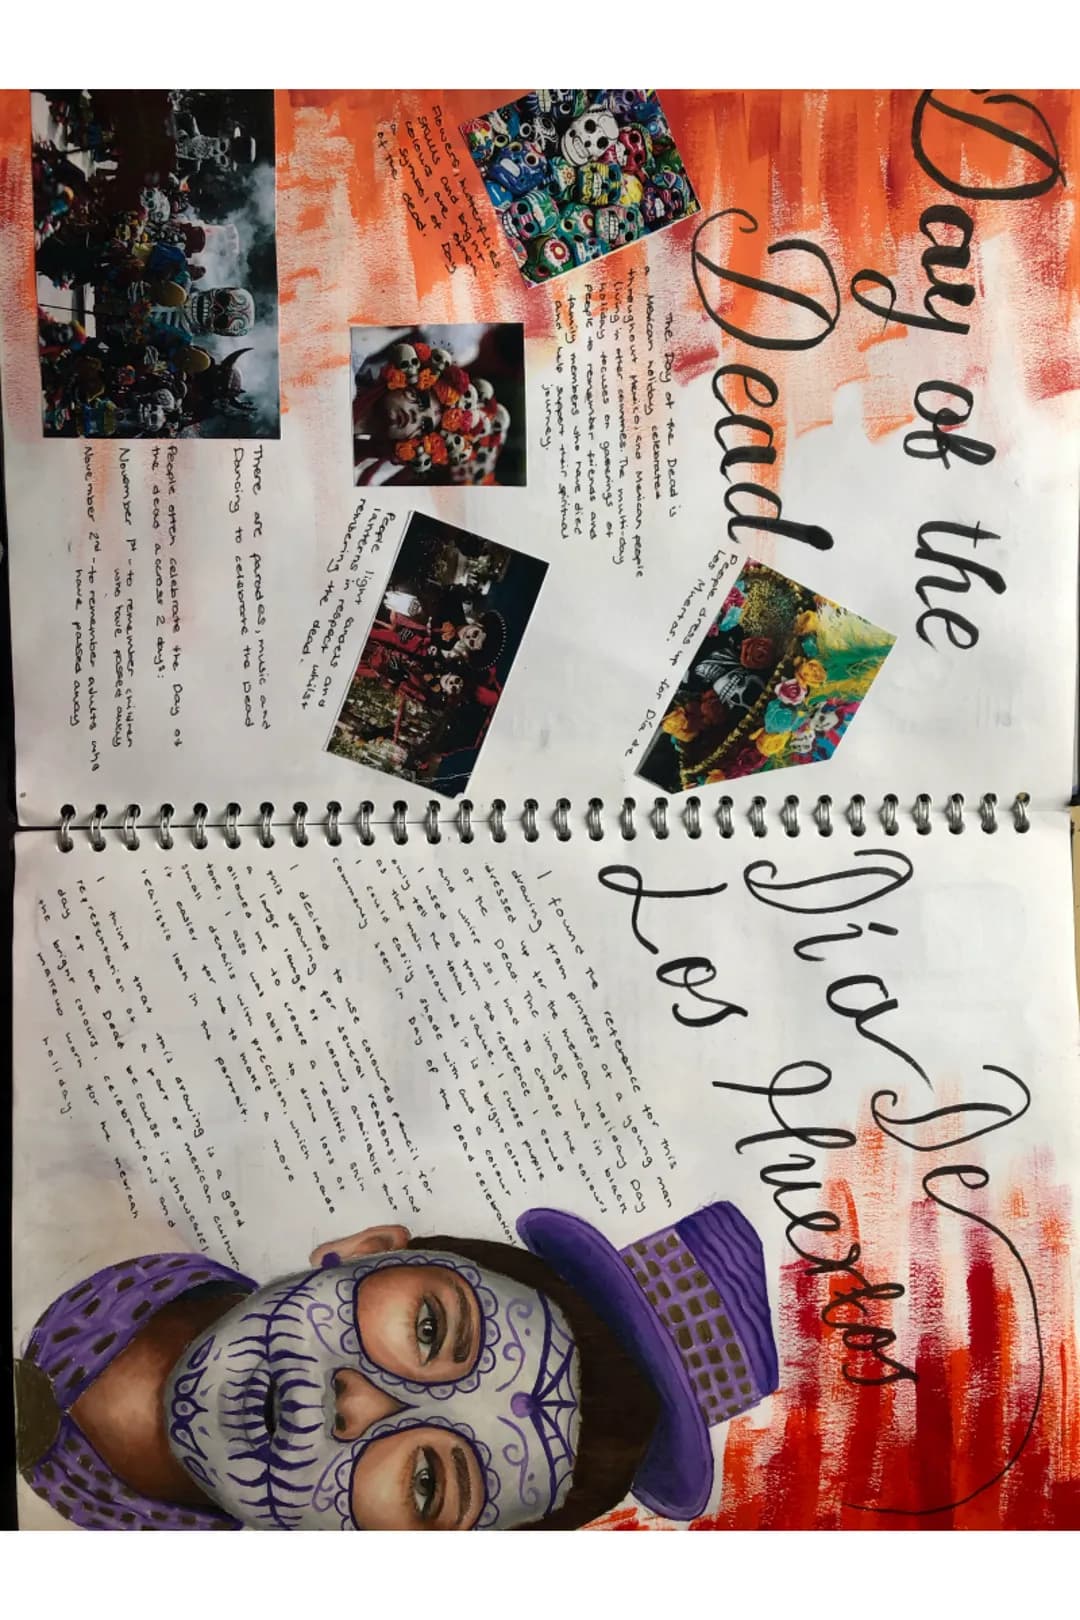 Day of the
Dead
People dress up for Día de
Los Muertos.
The Day of the Dead is
a Mexican holiday celebrated
throughout Mexico, and Mexican people
living in other countries. The multi-day
holiday focuses on gatherings of
people to remember friends and
family members who have died
and help support their spiritual
journey.
Flowers, butterflies
skulls and bright
colours are often
a symbol of Day
of the dead.
People light candles and
lanterns in respect whilst
There are parades, music and
Dancing to celebrate the Dead
People often celebrate the Day of
the dead across 2 days:
November 1st - to remember children
who have passed away
November 2nd - to remember adults who
have passed away
Dia De
Los Muertos
I found the reference for this
drawing from pintrest of a young man
dressed up for the mexican holiday Day
of the Dead. The image was in black
and white so I had to choose the colours
I used as from the reference I could
only tell the tonal value. I chose purple
as the main colour as it is a bright colour
I could easily shade with and a colour
commonly seen in Day of the Dead celebrations.
I decided to use coloured pencil for
this drawing for several reasons. I had
a large range of colours available that
allowed me to create a realistic skin
tone. I also was able to draw lots of
small details with precision, which made
it easier for me to make a more
realistic look in the portrait.
I think that this drawing is a good
representation of a part of mexican culture
day of the Dead because it showcases
the bright colours, celebrations and
makeup worn for the mexican
holiday.